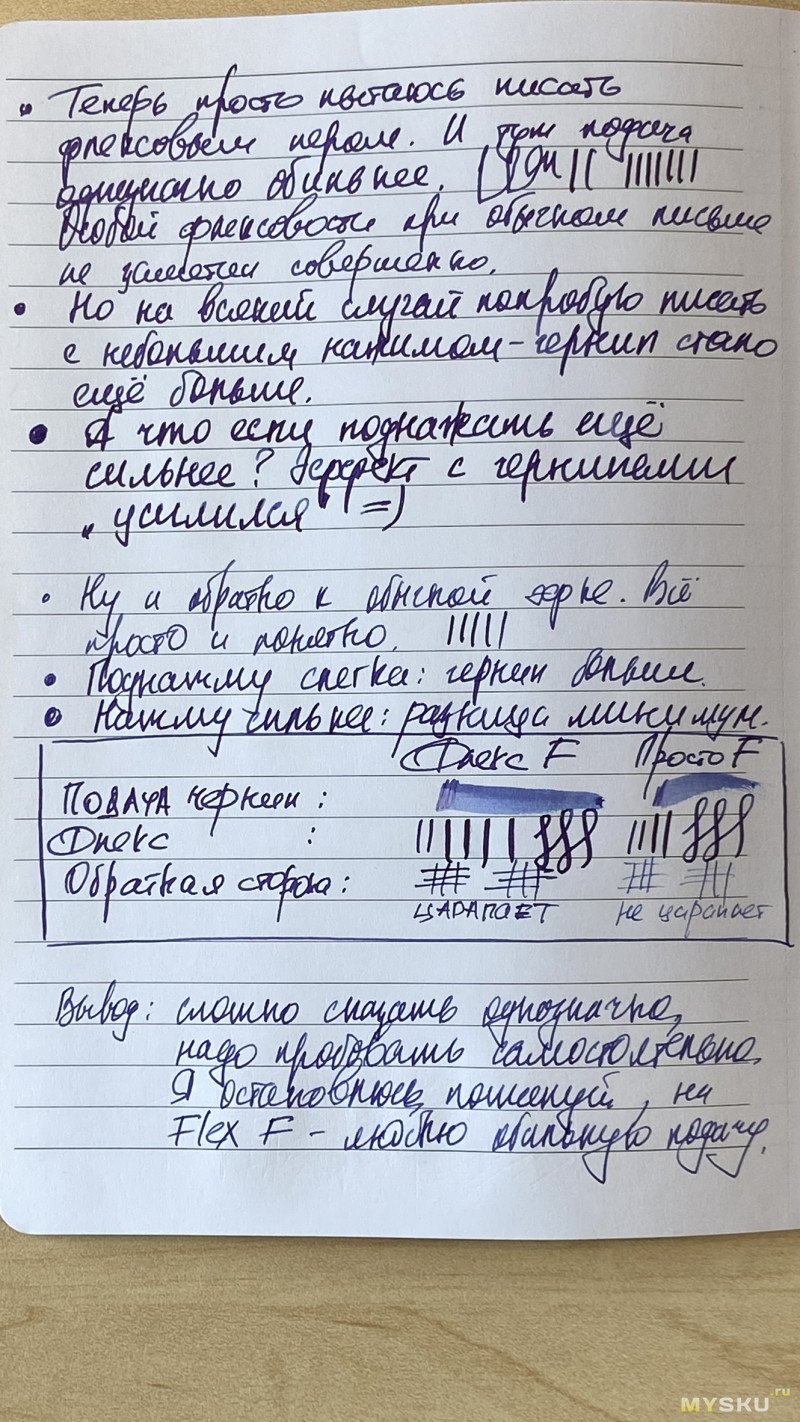 • Теперь просто пытаюсь писать
флексовым пером. И тут подача
однозначно обильнее.
Особой флексовости при обычном письме
не заметен совершенно.
• Но на всякий случай попробую писать
с небольшим нажимом - чернил стало
ещё больше.
• А что если поднажать ещё
сильнее? Эффект с чернилами
„усилился“ =)
• Ну и обратно к обычной эфке. Всё
просто и понятно.
• Поднажму слегка: чернил больше.
• Нажму сильнее: разница минимум.
Флекс F Просто F
Подача чернил:
Флекс :
Обратная сторона:
царапает не царапает
Вывод: сложно сказать однозначно,
надо пробовать самостоятельно.
Я остановлюсь, пожалуй, на
Flex F - люблю обильную подачу.
MYSKU.ru